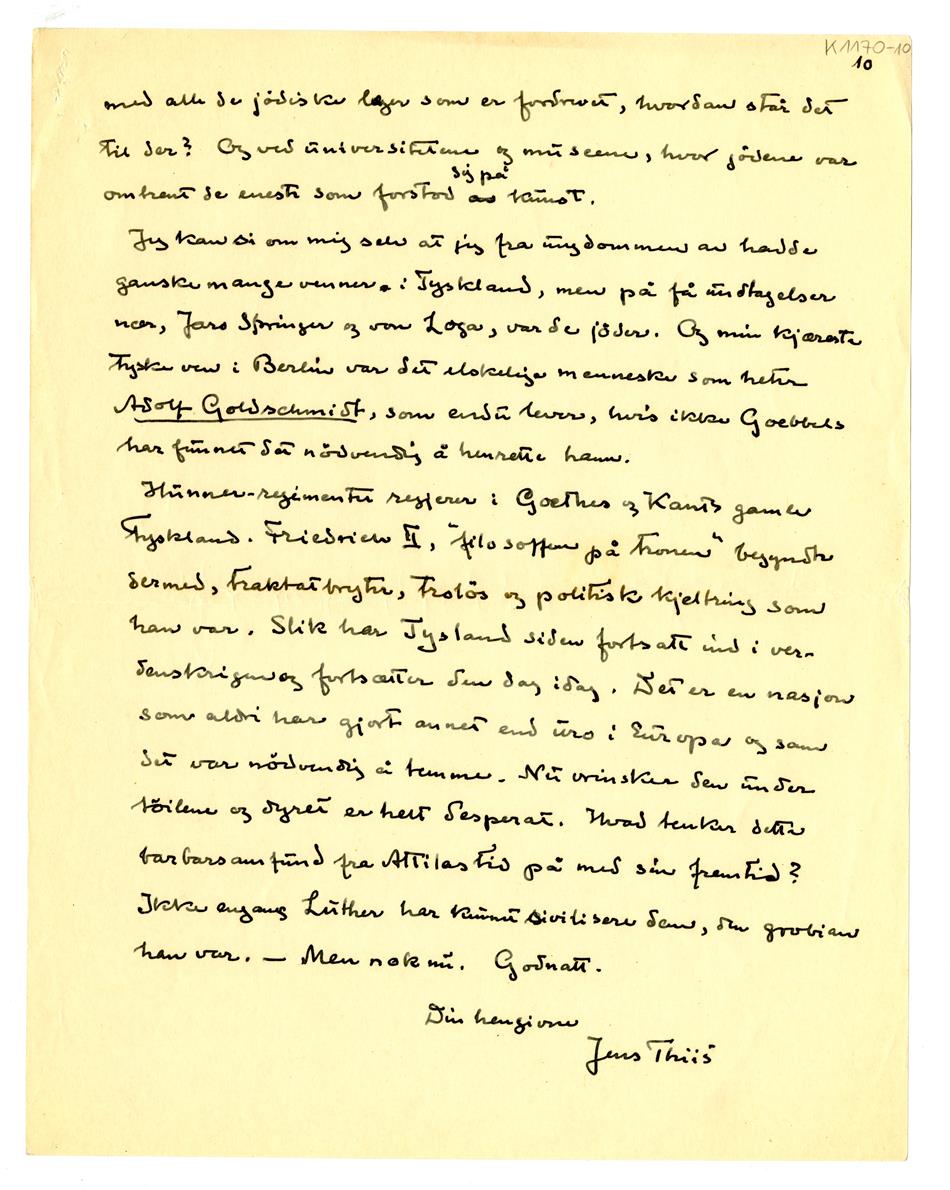 K1170-10
10
med alle de jödiske læger som er fordrevet, hvordan står det
til der? Og ved universitetene og museene, hvor jödene var
omtrent de eneste som forstod sig på kunst.
Jeg kan si om mig selv at jeg fra ungdommen av hadde
ganske mange venner i Tyskland, men på få undtagelser
nær, Jaro Springer og von Loga, var de jöder. Og min kjæreste
tyske ven i Berlin var det elskelige menneske som heter
Adolf Goldschmidt, som endu lever, hvis ikke Goebbels
har funnet det nödvendig å henrette ham.
Hunner-regimentet regjerer i Goethes og Kants gamle
Tyskland. Friedrich II, "filosoffen på tronen" begyndte
dermed, traktatbryter, trolös og politisk kjeltring som
han var. Slik har Tysland siden fortsatt ind i ver-
denskrigen og fortsætter den dag idag. Det er en nasjon
som aldri har gjort annet end uro i Europa og som
det var nödvendig å temme. Nu vrinsker den under
töilene og dyret er helt desperat. Hvad tenker dette
barbarsamfund fra Attilas tid på med sin fremtid?
Ikke engang Luther har kunnet sivilisere dem, den grobian
han var. — Men nok nu. Godnatt.
Din hengivne
Jens Thiis